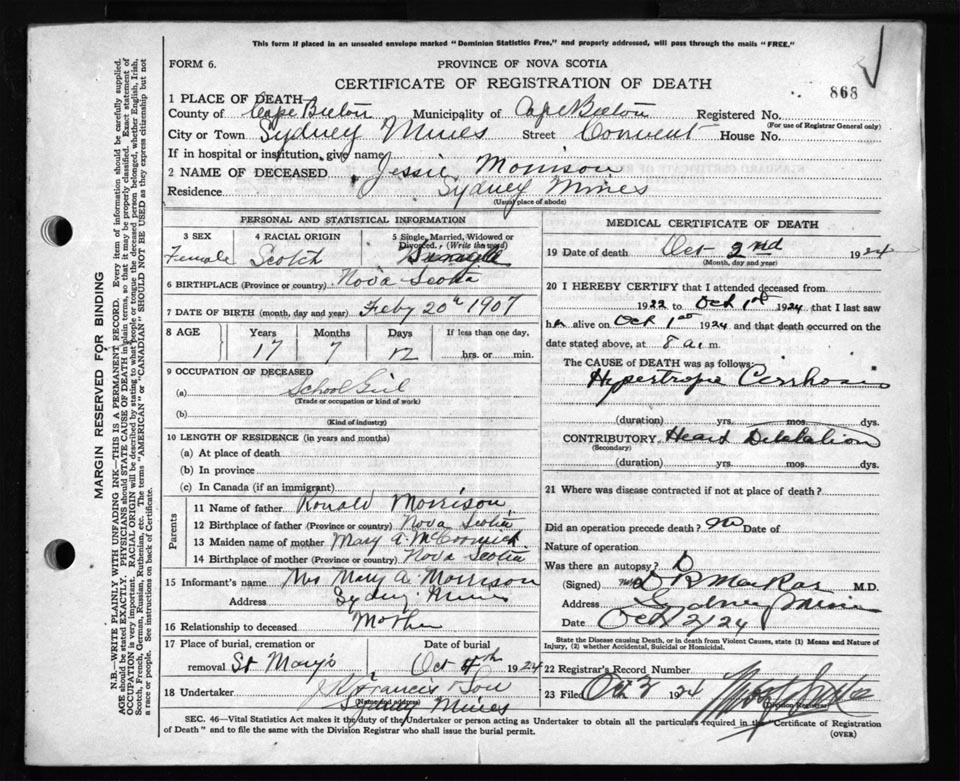 This form if placed in an unsealed envelope marked "Dominion Statistics Free," and properly addressed, will pass through the mails "FREE."
FORM 6.
PROVINCE OF NOVA SCOTIA
CERTIFICATE OF REGISTRATION OF DEATH
868
1 PLACE OF DEATH
County of Cape Breton Municipality of Cape Breton Registered No.
(For use of Registrar General only)
City or Town Sydney Mines Street Convent House No.
If in hospital or institution, give name
2 NAME OF DECEASED Jessie Morrison
Residence Sydney Mines
(Usual place of abode)
PERSONAL AND STATISTICAL INFORMATION
3 SEX 4 RACIAL ORIGIN 5 Single, Married, Widowed or Divorced. (Write the word)
Female Scotch Single
6 BIRTHPLACE (Province or country) Nova Scotia
7 DATE OF BIRTH (month, day and year) Feby 20th 1907
8 AGE Years Months Days If less than one day,
17 7 12 hrs. or min.
9 OCCUPATION OF DECEASED
(a) School Girl
(Trade or occupation or kind of work)
(b)
(Kind of industry)
10 LENGTH OF RESIDENCE (in years and months)
(a) At place of death
(b) In province
(c) In Canada (if an immigrant)
Parents
11 Name of father Ronald Morrison
12 Birthplace of father (Province or country) Nova Scotia
13 Maiden name of mother Mary A. McCormick
14 Birthplace of mother (Province or country) Nova Scotia
15 Informant's name Mrs Mary A. Morrison
Address Sydney Mines
16 Relationship to deceased Mother
17 Place of burial, cremation or removal St Mary's Date of burial Oct 4th 1924
18 Undertaker Francis Son
(Name and address)
Sydney Mines
MEDICAL CERTIFICATE OF DEATH
19 Date of death Oct 2nd 1924
(Month, day and year)
20 I HEREBY CERTIFY that I attended deceased from
1922 to Oct 1st 1924, that I last saw
her alive on Oct 1st 1924 and that death occurred on the
date stated above, at 8 a.m.
The CAUSE OF DEATH was as follows:
Hypertropic Cirrhosis
(duration) yrs. mos. dys.
CONTRIBUTORY Heart Dilatation
(Secondary)
(duration) yrs. mos. dys.
21 Where was disease contracted if not at place of death?
Did an operation precede death? no Date of
Nature of operation
Was there an autopsy?
(Signed) M.D.
Address Sydney Mines
Date Oct 2/24
State the Disease causing Death, or in death from Violent Causes, state (1) Means and Nature of Injury, (2) whether Accidental, Suicidal or Homicidal.
22 Registrar's Record Number
23 Filed Oct 3 1924
(Division Registrar)
SEC. 46—Vital Statistics Act makes it the duty of the Undertaker or person acting as Undertaker to obtain all the particulars required in the "Certificate of Registration
of Death" and to file the same with the Division Registrar who shall issue the burial permit.
(OVER)
MARGIN RESERVED FOR BINDING
N.B.—WRITE PLAINLY WITH UNFADING INK—THIS IS A PERMANENT RECORD. Every item of information should be carefully supplied.
AGE should be stated EXACTLY. PHYSICIANS should STATE CAUSE OF DEATH in plain terms, so that it may be properly classified. Exact statement of
OCCUPATION is very important. RACIAL ORIGIN will be described by stating to what people or tongue the deceased person belonged, whether English, Irish,
Scotch, French, German, Russian, Ruthenian, etc. The terms "AMERICAN" or "CANADIAN" SHOULD NOT BE USED as they express citizenship but not
a race or people. See instructions on back of Certificate.